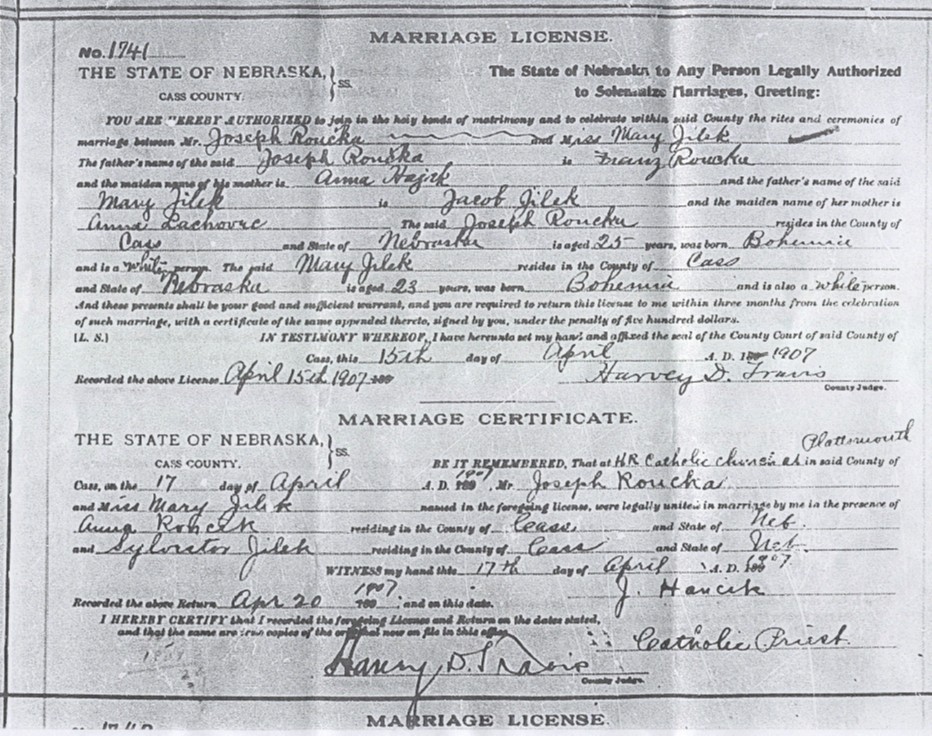 MARRIAGE LICENSE.
No. 1741
THE STATE OF NEBRASKA, } SS.
CASS COUNTY.
The State of Nebraska to Any Person Legally Authorized
to Solemnize Marriages, Greeting:
YOU ARE HEREBY AUTHORIZED to join in the holy bonds of matrimony and to celebrate within said County the rites and ceremonies of
marriage between Mr. Joseph Roucka and Miss Mary Jilek
The father's name of the said Joseph Roucka is Franz Roucka
and the maiden name of his mother is Anna Hajek and the father's name of the said
Mary Jilek is Jacob Jilek and the maiden name of her mother is
Anna Lachovic The said Joseph Roucka resides in the County of
Cass and State of Nebraska is aged 25 years, was born Bohemia
and is a white person. The said Mary Jilek resides in the County of Cass
and State of Nebraska is aged 23 years, was born Bohemia and is also a white person.
And these presents shall be your good and sufficient warrant, and you are required to return this license to me within three months from the celebration
of such marriage, with a certificate of the same appended thereto, signed by you, under the penalty of five hundred dollars.
(L. S.) IN TESTIMONY WHEREOF, I have hereunto set my hand and affixed the seal of the County Court of said County of
Cass, this 15th day of April A. D. 1907
Recorded the above License April 15th 1907 Harvey D. Travis
County Judge.
MARRIAGE CERTIFICATE.
THE STATE OF NEBRASKA, } SS.
CASS COUNTY.
Plattsmouth
BE IT REMEMBERED, That at H R Catholic church at in said County of
Cass, on the 17 day of April A. D. 1907, Mr. Joseph Roucka
and Miss Mary Jilek named in the foregoing license, were legally united in marriage by me in the presence of
Anna Roncek residing in the County of Cass and State of Neb.
and Sylvestor Jilek residing in the County of Cass and State of Neb.
WITNESS my hand this 17th day of April A. D. 1907.
Recorded the above Return Apr 20 1907 and on this date. J. Hancik
I HEREBY CERTIFY that I recorded the foregoing License and Return on the dates stated,
and that the same are true copies of the original now on file in this office.
Catholic Priest.
Harvey D. Travis
County Judge.
MARRIAGE LICENSE.